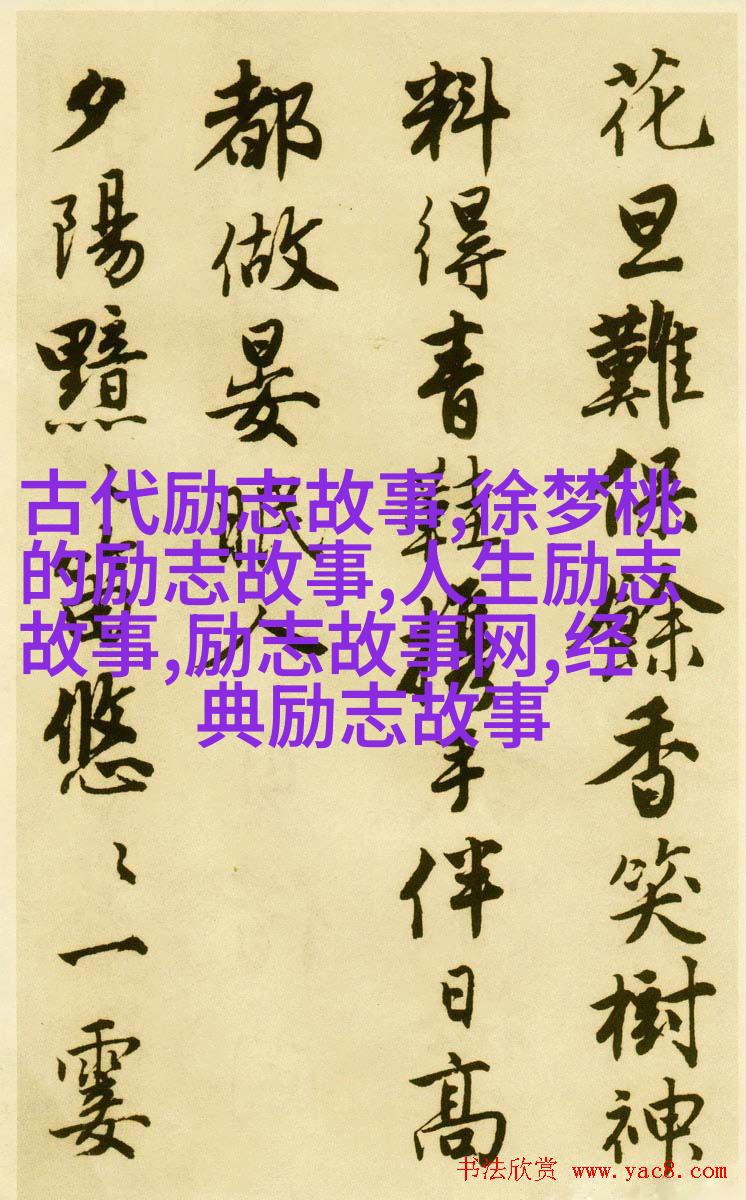 花旦難保餘香笑樹神
料得青鞋攜手伴日高
都做晏眠人
夕陽黯〻笛悠〻一霎
古代励志故事,徐梦桃
的励志故事,人生励志
故事,励志故事网,经
典励志故事
书法欣赏 www.yac8.com